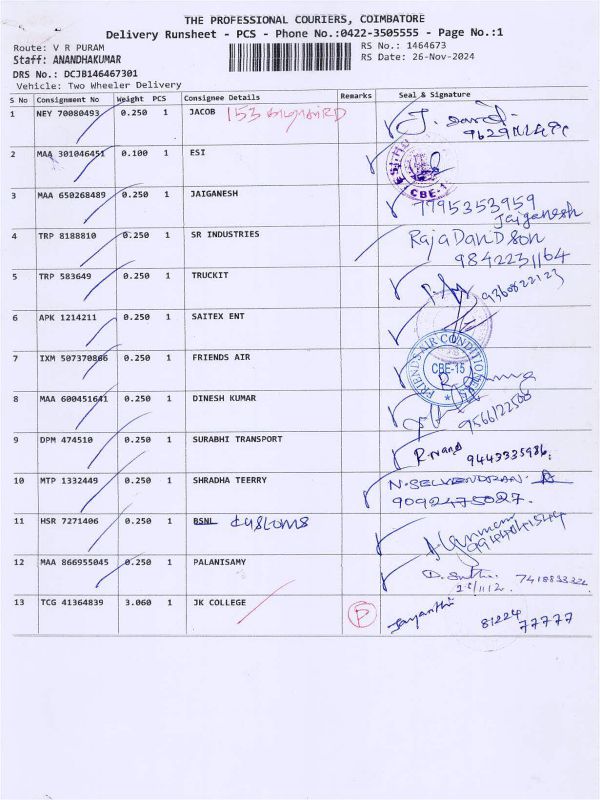 THE PROFESSIONAL COURIERS, COIMBATORE
Delivery Runsheet - PCS - Phone No.:0422-3505555 - Page No.:1
Route: V R PURAM
RS No.: 1464673
Staff: ANANDHAKUMAR
RS Date: 26-Nov-2024
DRS No.: DCJB146467301
Vehicle: Two Wheeler Delivery
S No Consignment No Weight PCS Consignee Details Remarks Seal & Signature
1 NEY 70080493 0.250 1 JACOB 153
2 MAA 301046451 0.100 1 ESI CBE-1
3 MAA 650268489 0.250 1 JAIGANESH 7795353959
Jaiganesh
4 TRP 8188810 0.250 1 SR INDUSTRIES Raja Davidson
9842231164
5 TRP 583649 0.250 1 TRUCKIT 9360822123
6 APK 1214211 0.250 1 SAITEX ENT
7 IXM 507370866 0.250 1 FRIENDS AIR FRIENDS AIR CONDITION CBE-15
8 MAA 600451641 0.250 1 DINESH KUMAR 9566122508
9 DPM 474510 0.250 1 SURABHI TRANSPORT R.nand 9443335986.
10 MTP 1332449 0.250 1 SHRADHA TEERRY N. SELVENDRAN.
9092475027.
11 HSR 7271406 0.250 1 BSNL customs
12 MAA 866955045 0.250 1 PALANISAMY
13 TCG 41364839 3.060 1 JK COLLEGE P Jayanthi 81224
77777